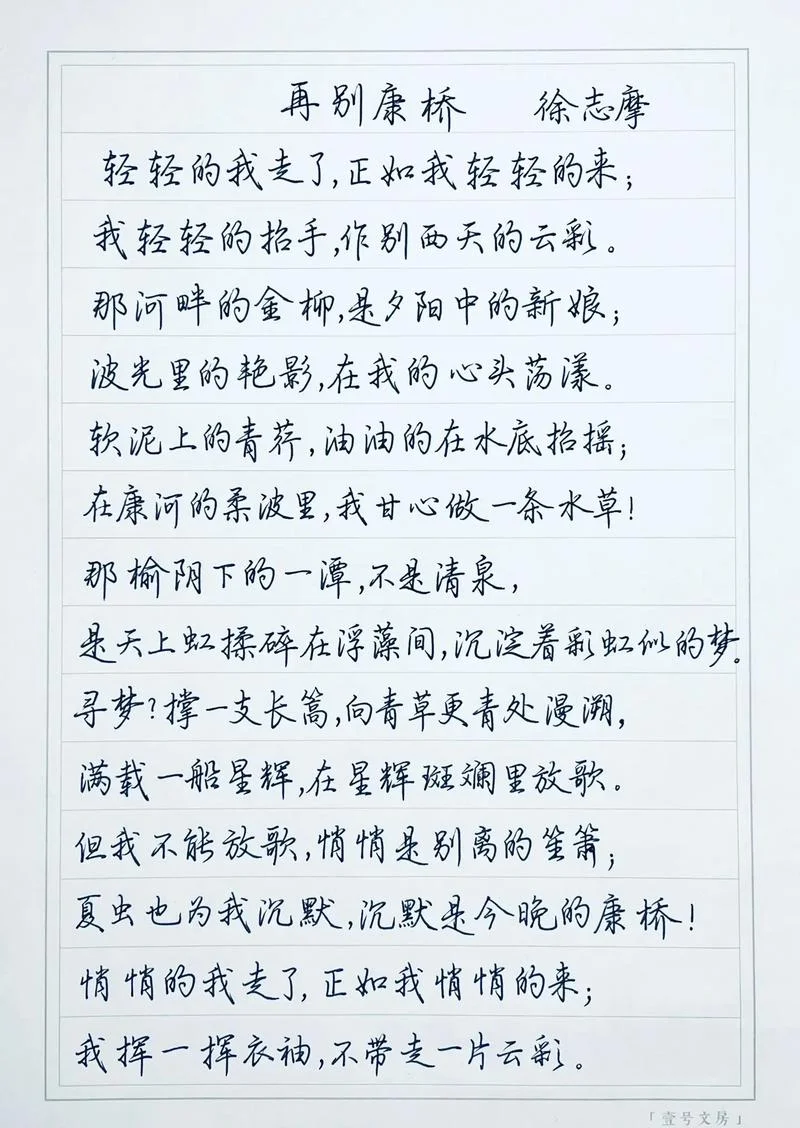 再别康桥 徐志摩
轻轻的我走了,正如我轻轻的来;
我轻轻的招手,作别西天的云彩。
那河畔的金柳,是夕阳中的新娘;
波光里的艳影,在我的心头荡漾。
软泥上的青荇,油油的在水底招摇;
在康河的柔波里,我甘心做一条水草!
那榆阴下的一潭,不是清泉,
是天上虹揉碎在浮藻间,沉淀着彩虹似的梦。
寻梦?撑一支长篙,向青草更青处漫溯,
满载一船星辉,在星辉斑斓里放歌。
但我不能放歌,悄悄是别离的笙箫;
夏虫也为我沉默,沉默是今晚的康桥!
悄悄的我走了,正如我悄悄的来;
我挥一挥衣袖,不带走一片云彩。
「壹号文房」